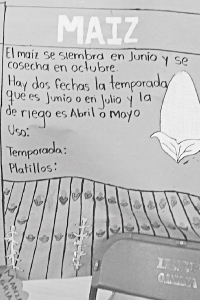 MAIZ
El maiz se siembra en Junio y se
cosecha en octubre.
Hay dos fechas la temporada
que es Junio o en Julio y la
de riego es Abril o Mayo
Uso:
Temporada:
Platillos: